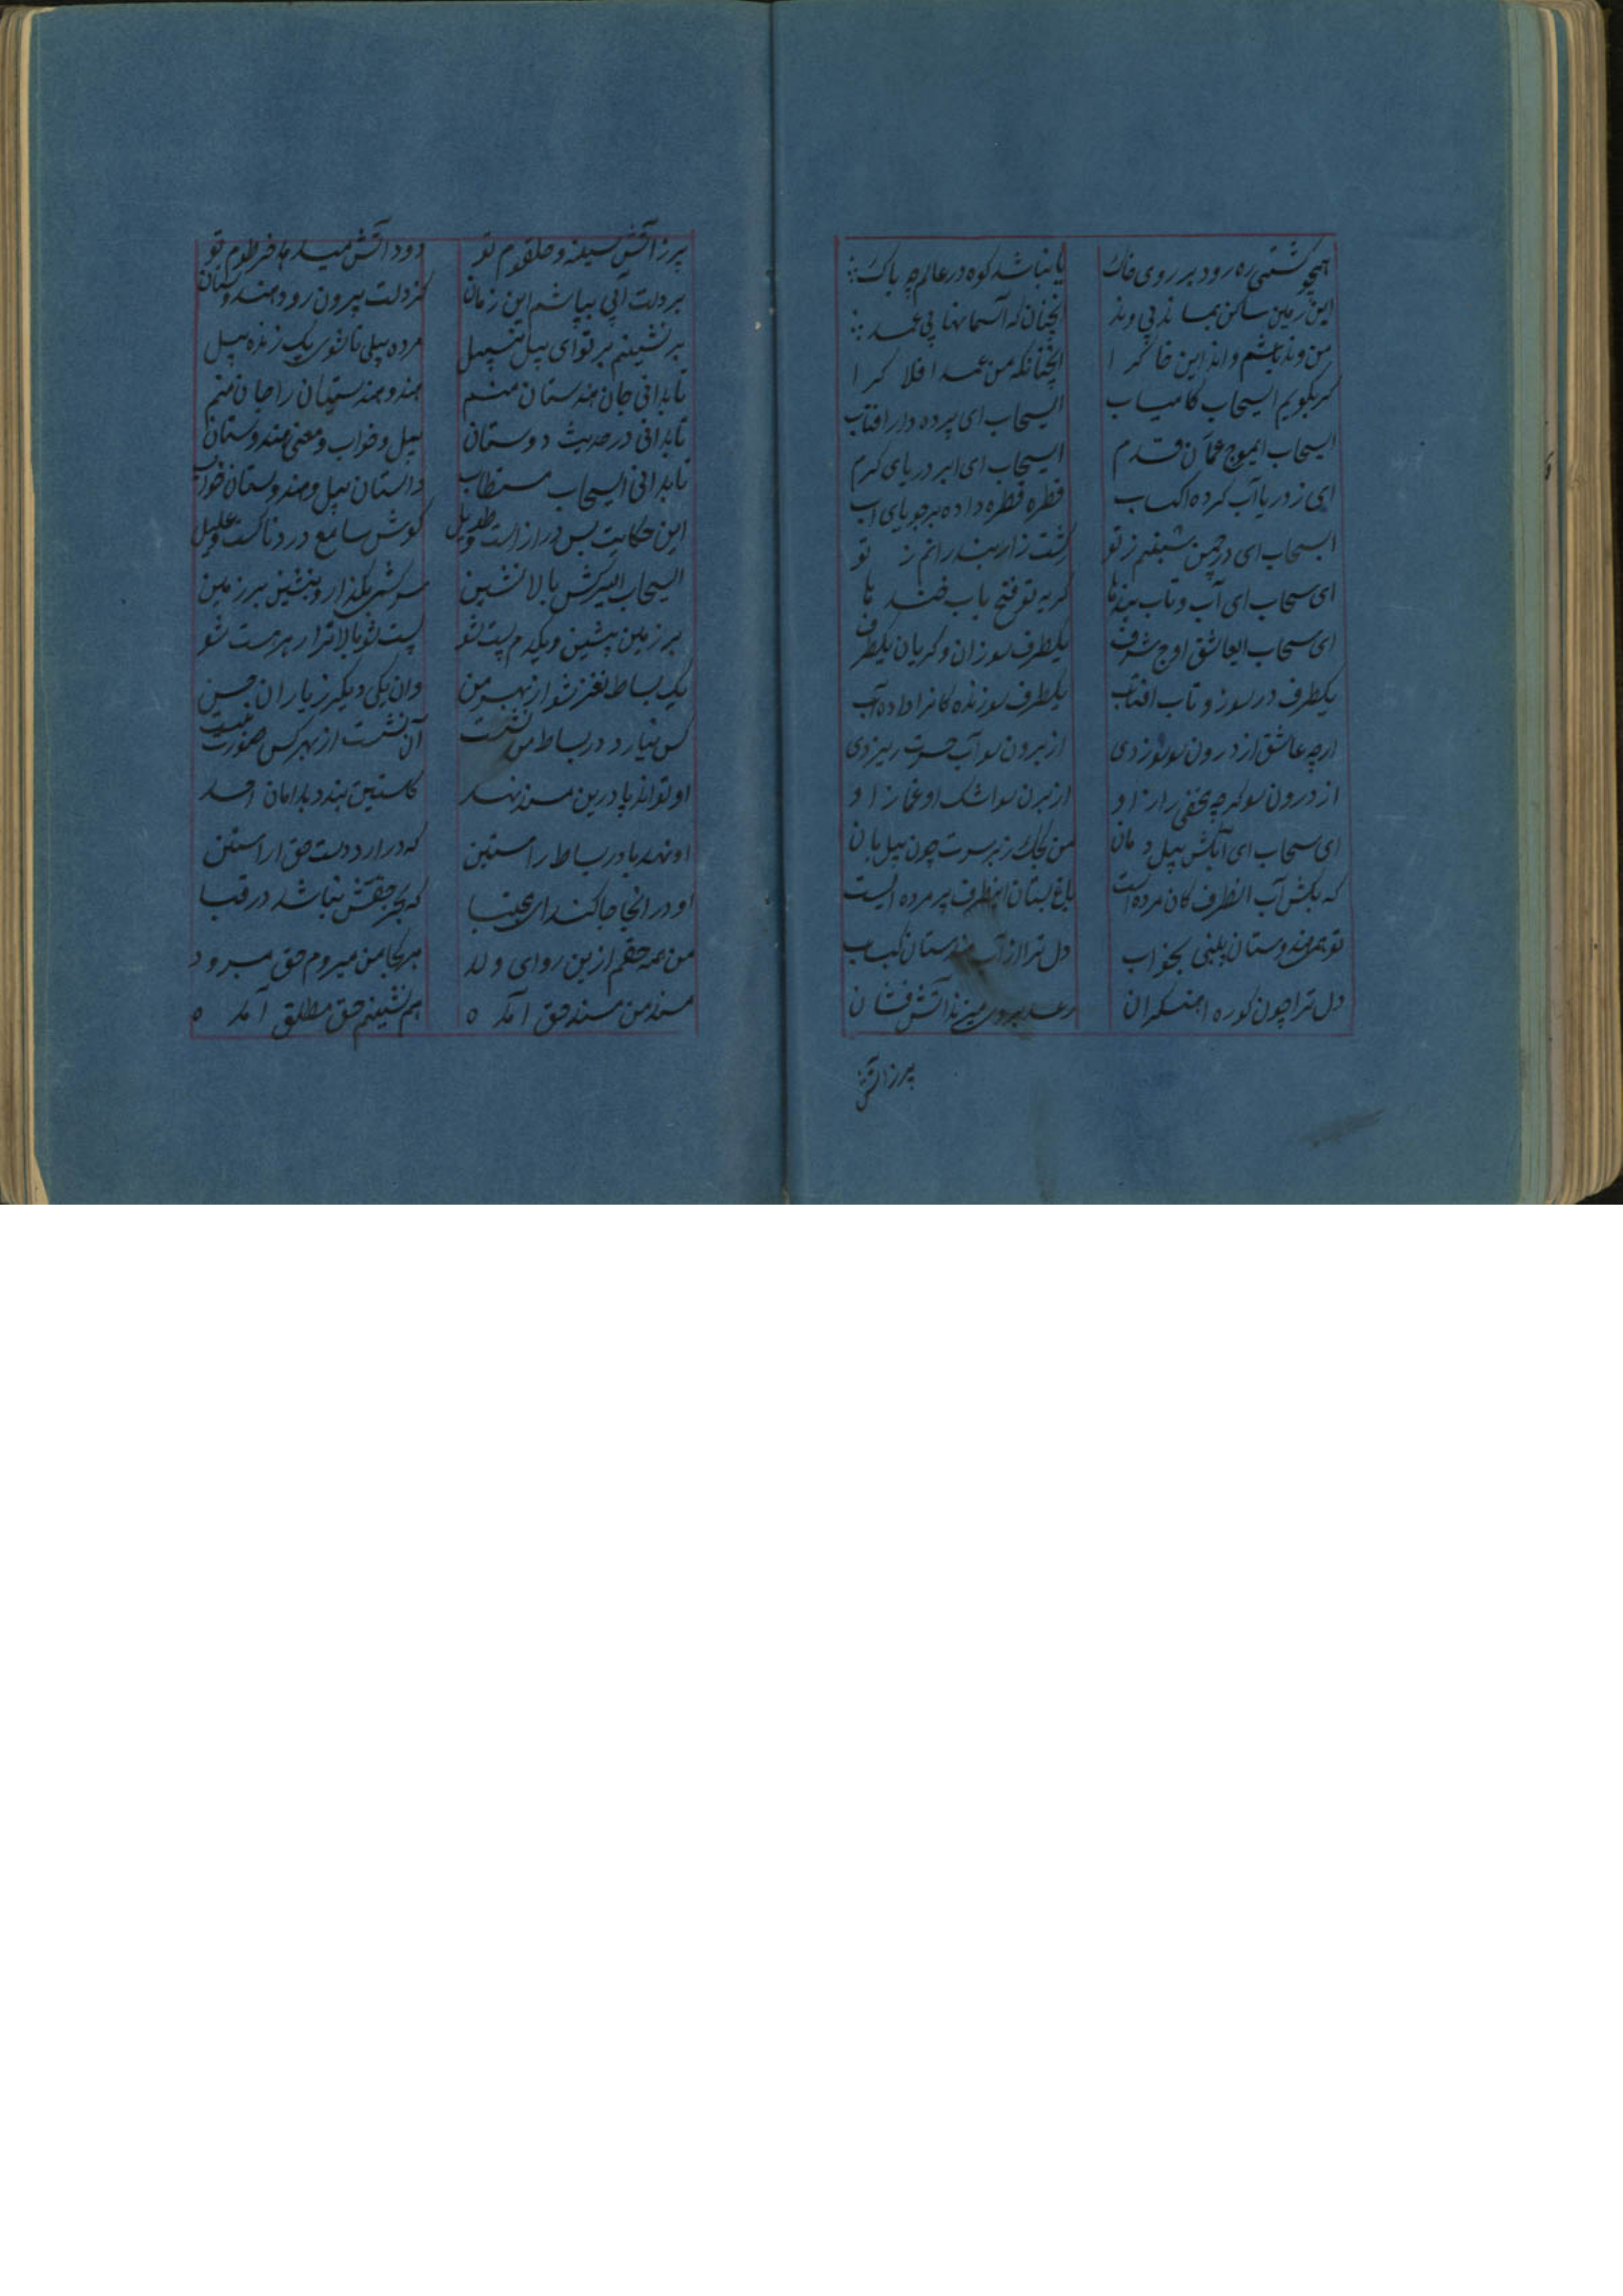 همچو کشتی ره رود بر روی خاک یا نباشد کوه در عالم چه باک
این زمین ساکن بماند بی وتد آنچنان که آسمانها بی عمد
من وتد باشم واند این خاک را آنچنانکه من عمد افلاک را
کر بکویم ایسحاب کامیاب ایسحاب ای پرده دار افتاب
ایسحاب ایموج عمان قدم ایسحاب ای ابر دریای کرم
ای ز دریا آب کرده اکتساب قطره قطره داده بر جویای آب
ایسحاب ای در چمن شبنم ز تو کشت زار بندرانم ز تو
ای سحاب ای آب و تاب کریه تو فتح باب خنده ها
ای سحاب ایعاشق اوج شرف یکطرف سوزان و کریان یکطرف
یکطرف در سوز و تاب افتاب یکطرف سوزنده کانرا داده آب
ارچه عاشق از درون سو سوزدی از برون سو آب حسرت ریزدی
از درون سو کرچه مخفی راز او از برن سو اشک او غماز او
ای سحاب ای آبکش پیل دمان من کجک بر سرت چون پیل بان
که بکش آب انطرف کان مرده است باغ بستان اینطرف پرمرده است
تو همی هندوستان بینی بخواب دل ترا از آب هندستان کباب
دل ترا چون کوره اهنکران رعد آتش فشان
پر ز آتش
پر ز آتش سینه و حلقوم تو دود آتش میدهد خرطوم تو
بر دلت آبی بپاشم این زمان کز دلت بیرون رود هندوستان
بر نشینم بر تو ای پیل مرده پیلی تا شوی یک زنده پیل
تا بدانی جان هندستان منم هند و هندستان را جان منم
تا بدانی در حدیث دوستان پیل و خواب و معنی هندوستان
تا بدانی ایسحاب مستطاب داستان پیل و هندوستان خواب
این حکایت بس دراز است و طویل کوش سامع دردناکست و علیل
ایسحاب ایسرکش بالا نشین سرکشی بکذار و بنشین بر زمین
بر زمین بنشین و یکدم پست شو پست شو بالاتر از هر هست شو
یک بساط نغز شو از بهر من وان یکی دیکر ز یاران حسن
کس نیارد در بساط من نشست آن نشست از بهر کس صورت نبست
او تواند پا درین مسند نهد کاستین بندد بدامان احد
او نهد پا در بساط راستین که درارد دست حق از استین
او در انجا جا کند ای مجتبا که بجز حقش نباشد در قبا
من همه حقم ازین رو ای ولد هر کجا من میروم حق میرود
مسند من مسند حق آمده هم نشینم حق مطلق آمده